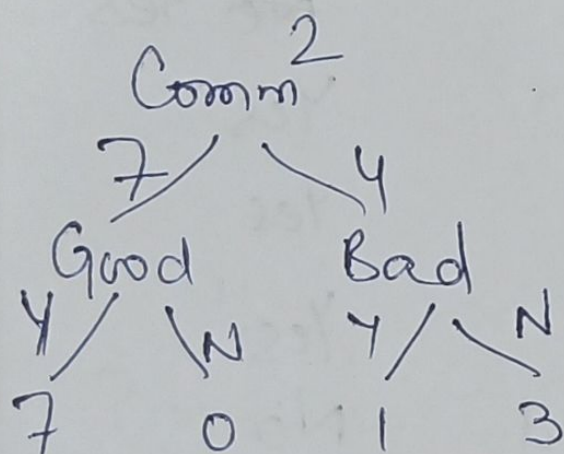 Comm²
7 4
Good Bad
Y N Y N
7 0 1 3